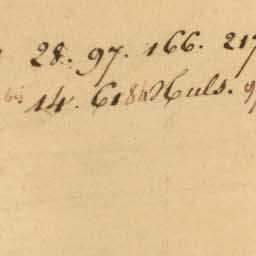 28. 97. 166. 217
14. 61 84 Huls.